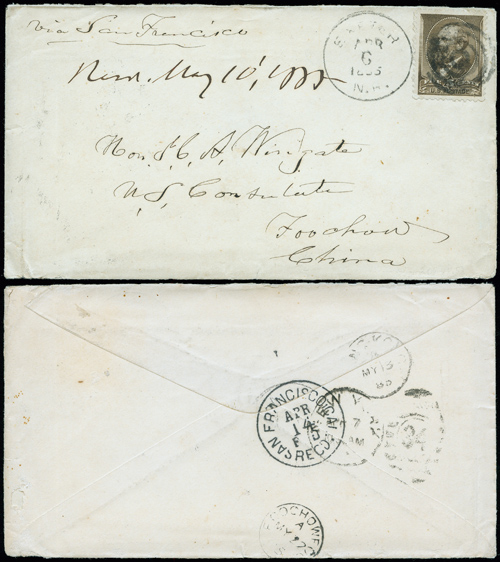 via San Francisco
EXETER
APR
6
1885
N.H.
Recd. May 10, 1885
Hon. J. C. A. Wingate
U.S. Consulate
Foochow
China
MY 13
85
SAN FRANCISCO, CAL.
APR
14
REC'D
7
AM
FOOCHOW
A
MY